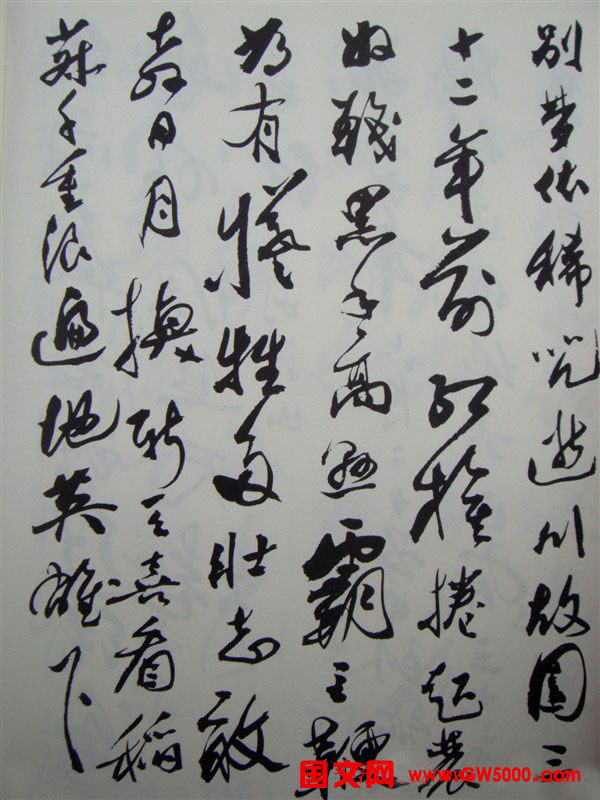 别夢依稀咒逝川故園三
十二年前红旗捲起農
奴戟黑手高悬霸主鞭
为有犧牲多壮志敢
教日月换新天喜看稻
菽千重浪遍地英雄下
国文网 www.GW5000.com